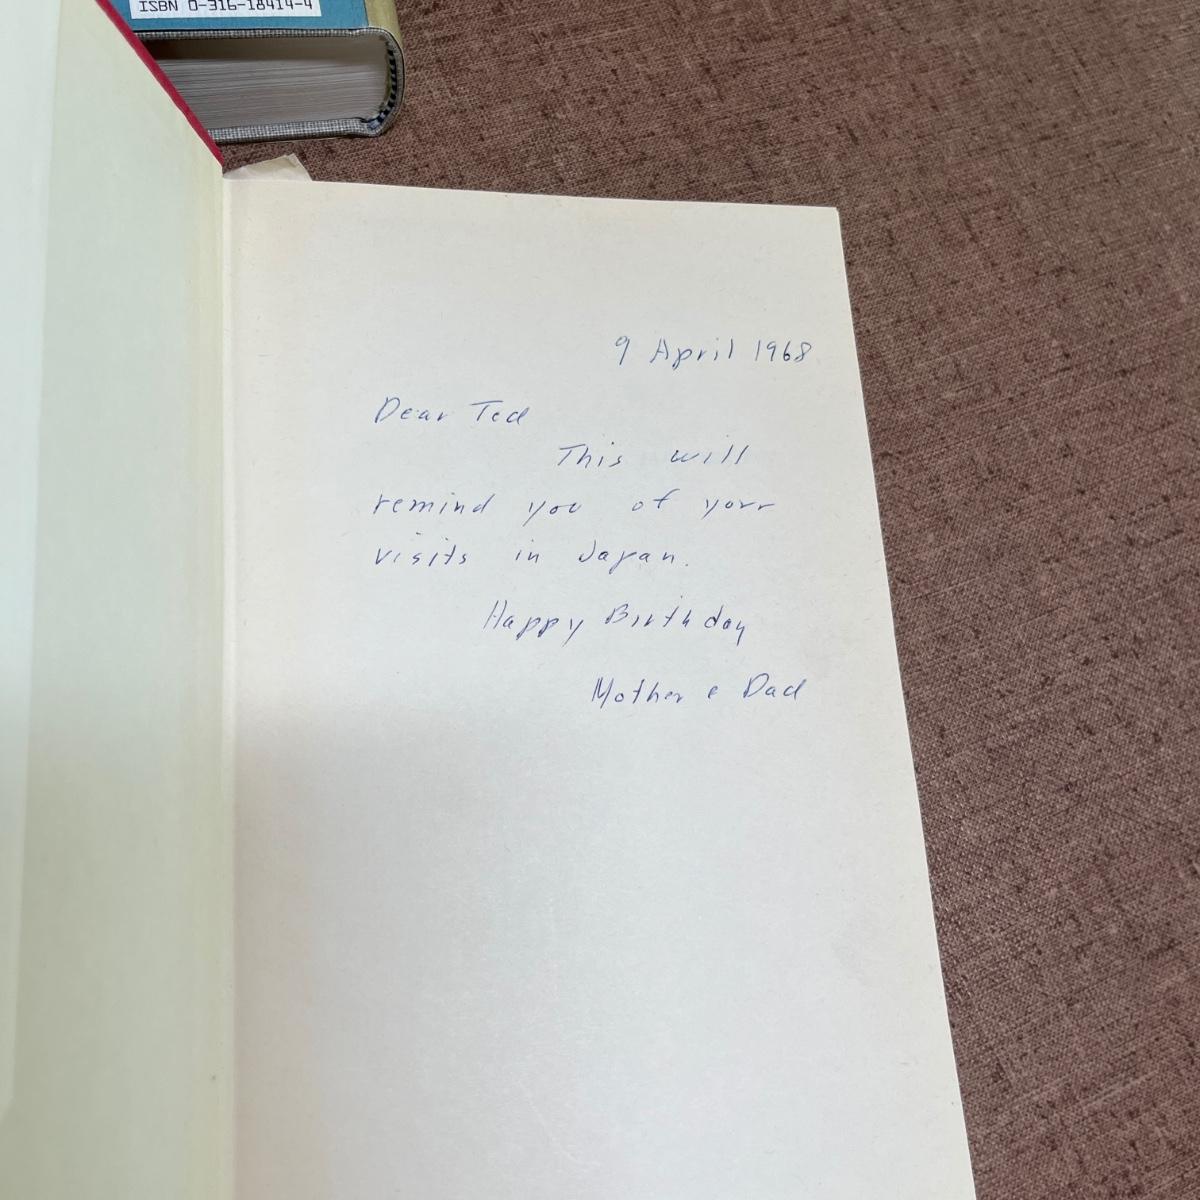 ISBN 0-316-18414-4
9 April 1968
Dear Ted
This will
remind you of your
visits in Japan.
Happy Birthday
Mother & Dad